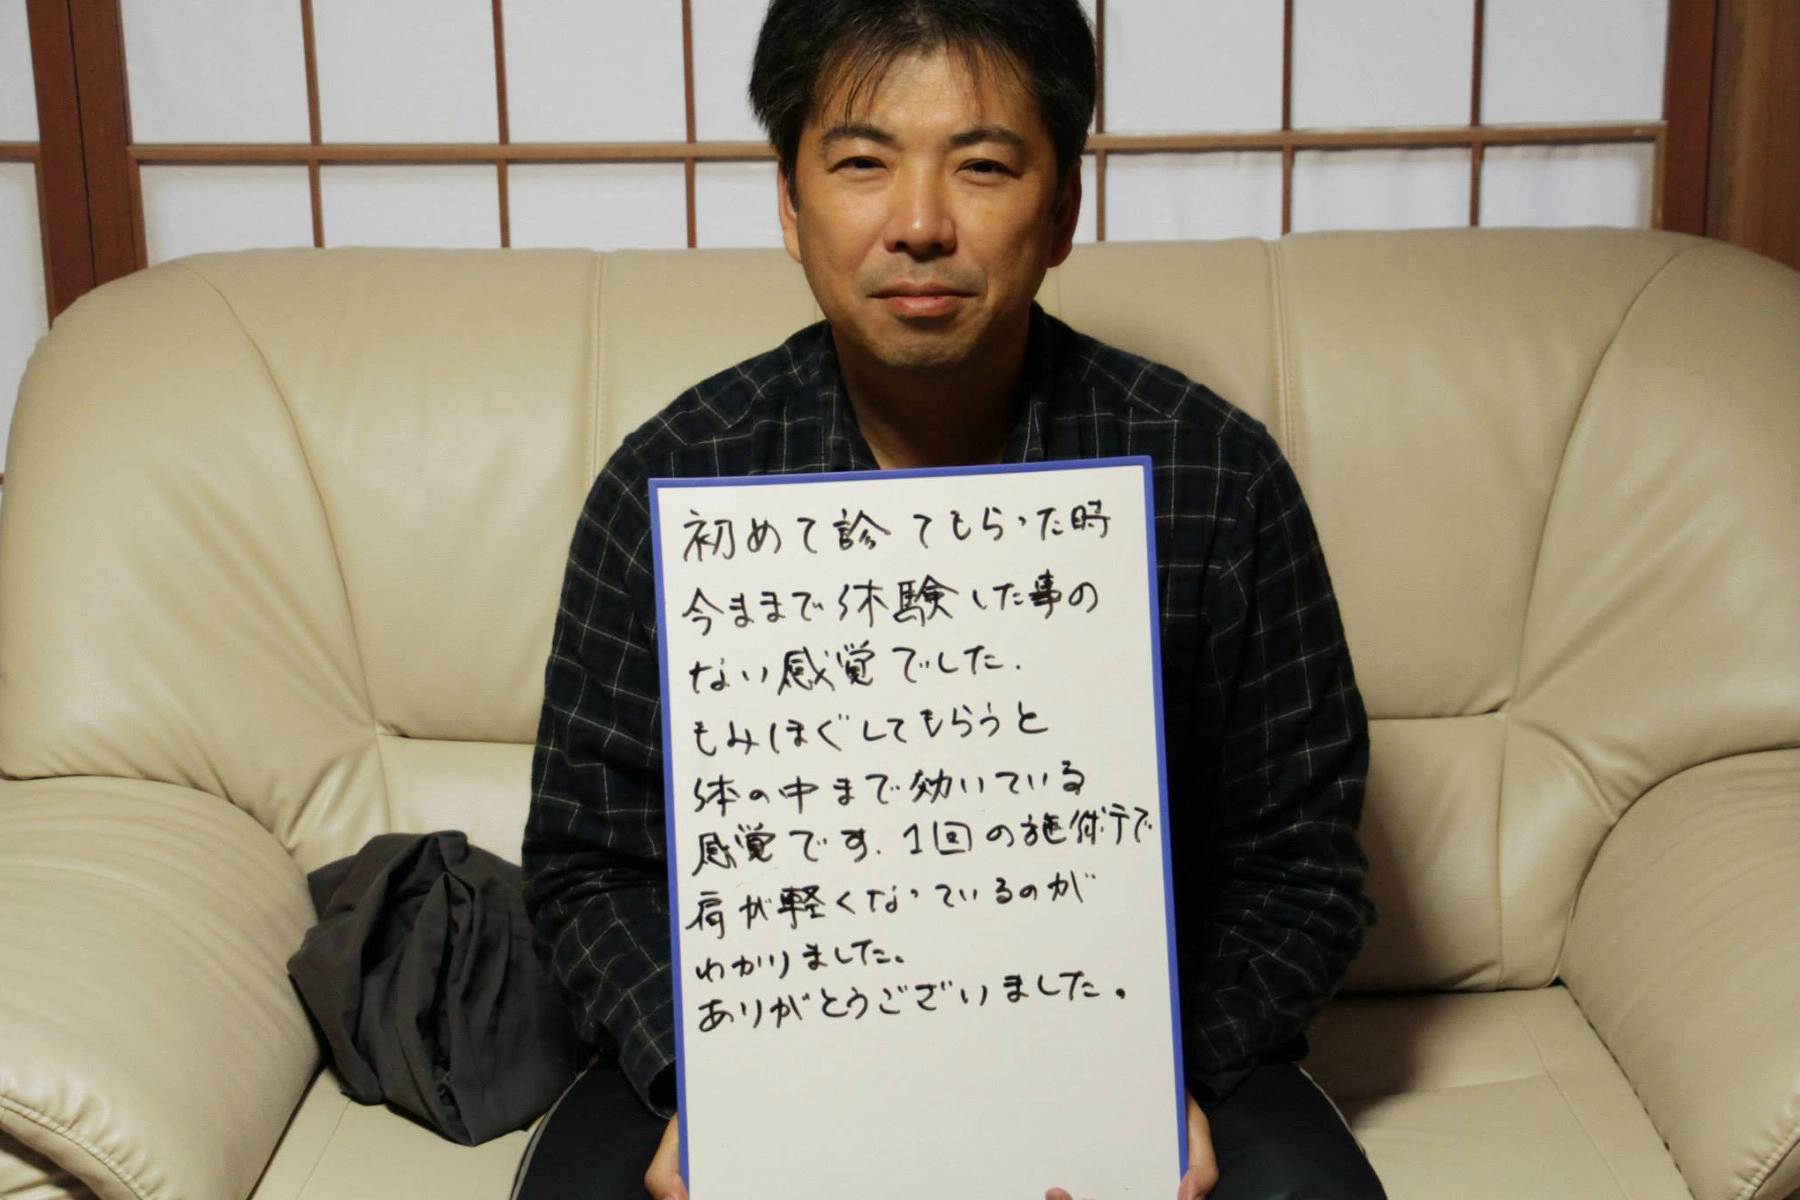 初めて診てもらった時
今ままで体験した事の
ない感覚でした.
もみほぐしてもらうと
体の中まで効いている
感覚です.1回の施術で
肩が軽くなっているのが
わかりました。
ありがとうございました。